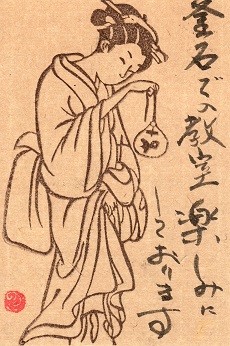 釜石での教室
楽しみに
しております